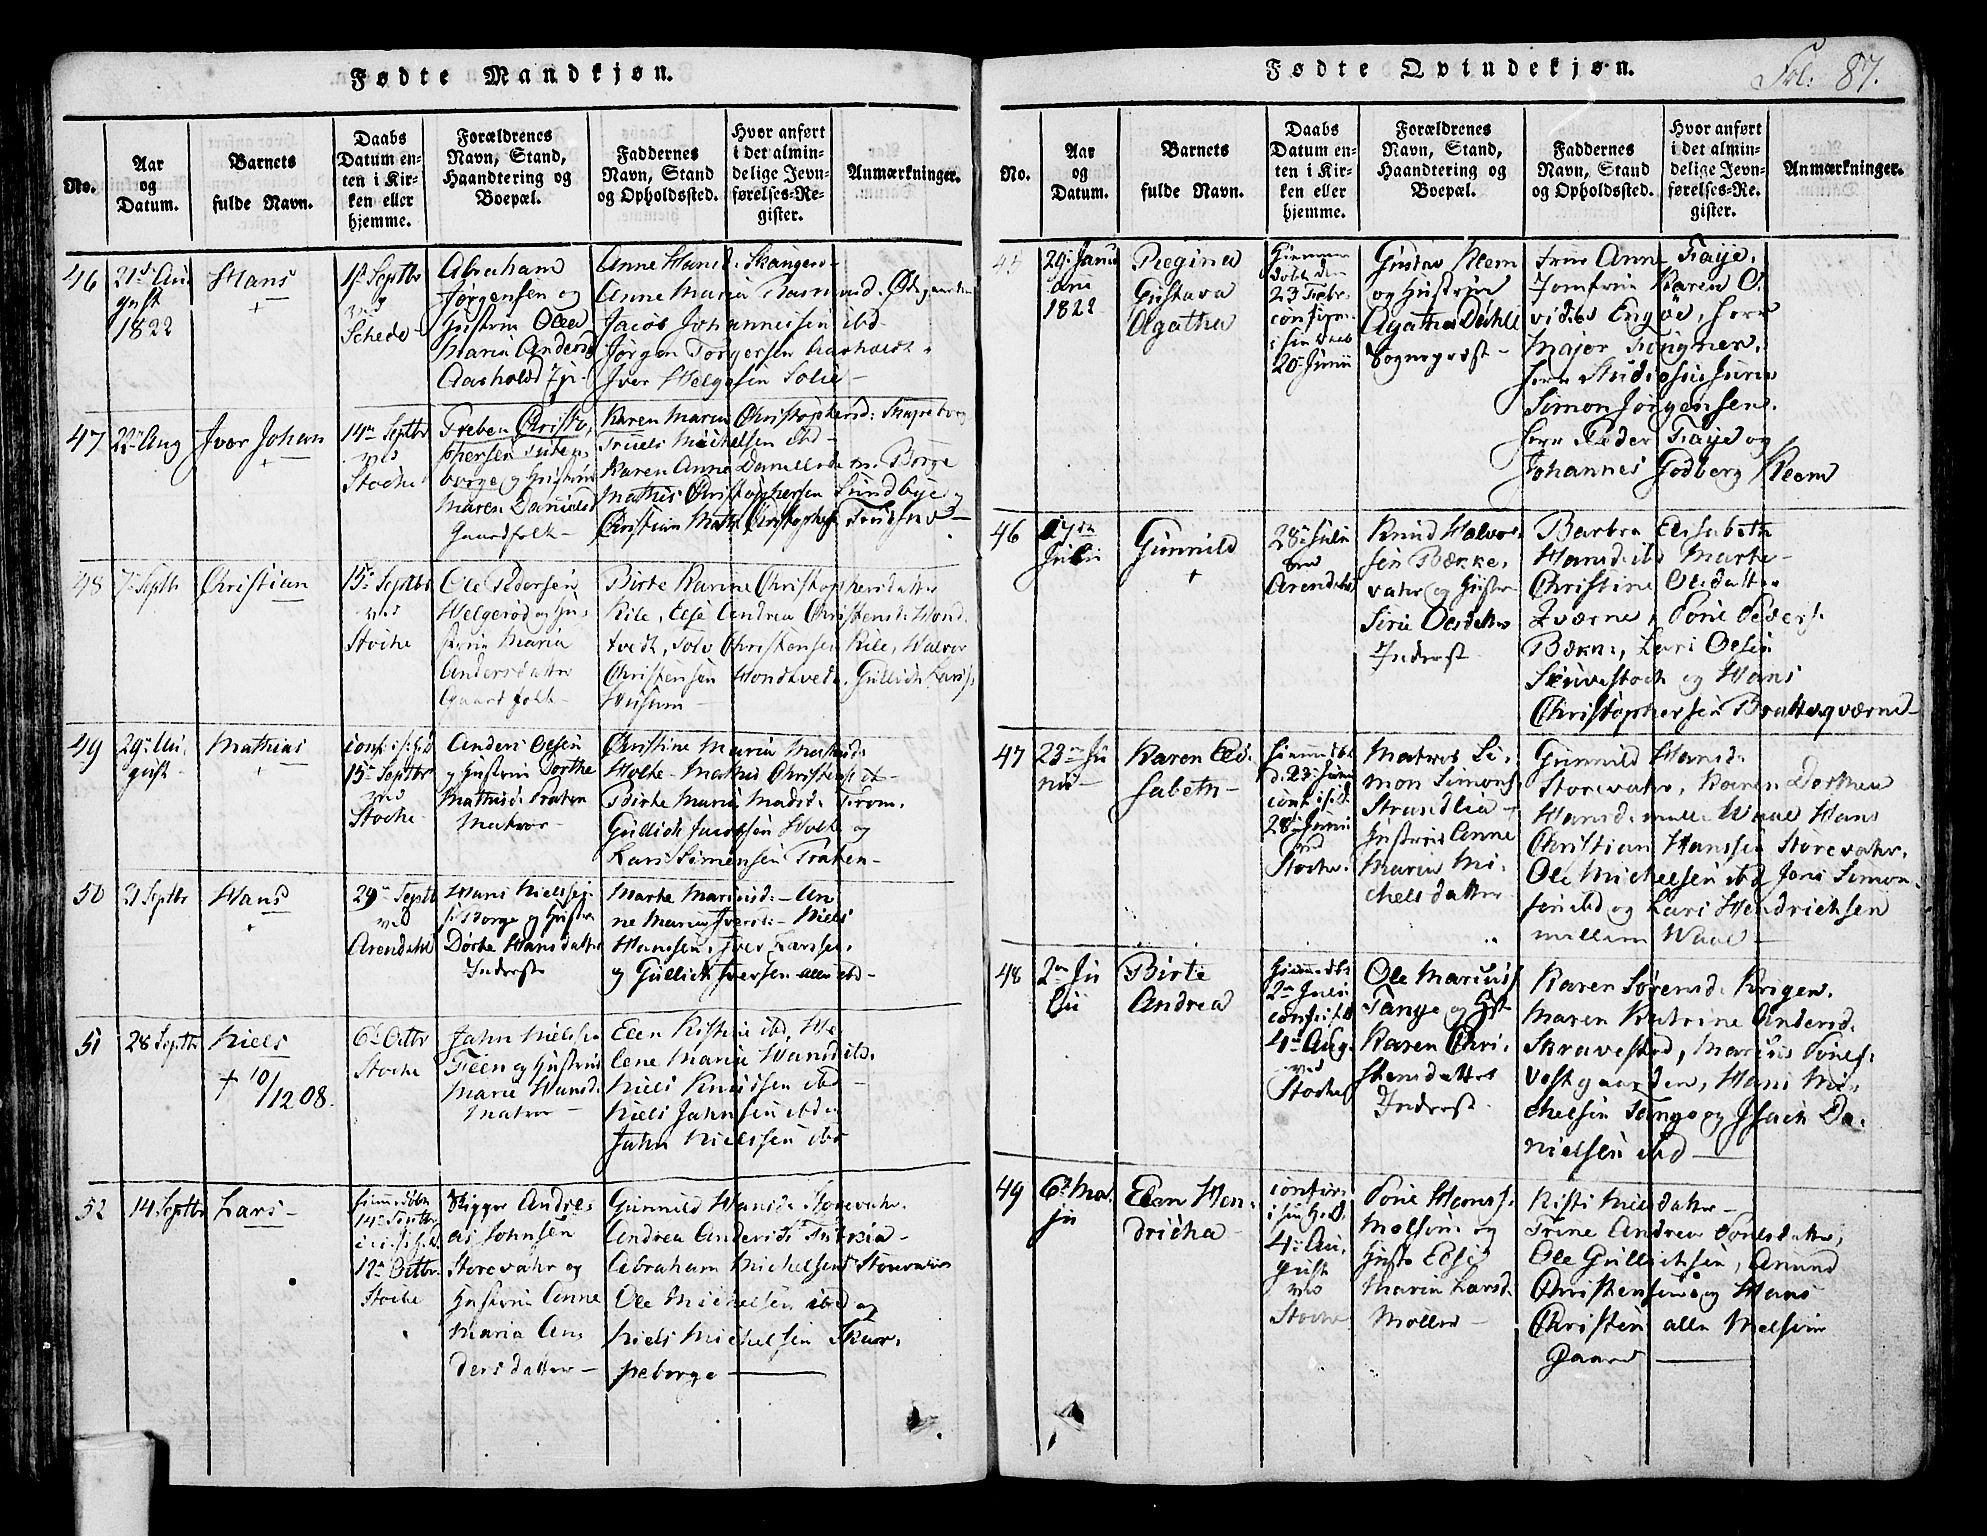 Fødte Mandkjøn.
No.
Aar
og
Datum.
Barnets
fulde Navn.
Daabs
Datum en-
ten i Kir-
ken eller
hjemme.
Forældrenes
Navn, Stand,
Haandtering og
Boepæl.
Faddernes
Navn, Stand
og Opholdssted.
Hvor anført
i det almin-
delige Jevn-
førelses-Re-
gister.
Anmærkninger.
46
21d Au
gust
1822
Hans
+
1st Septbr
ved
Schede-
Abraham
Jørgensen og
Hustru Olea
Maria Andersd
Aasholdt
Anne Hansd. Skanger-
Anne Maria
Jacob Johannessen ibd-
Jørgen Torgersen Aasholdt.
Iver Helgesen Solie-
47
22n Aug
Ivor Johan
+
14n Septbr
ved
Stocke
Preben Christo,
phersen
borge og Hustru
Maren Daniels
Gaardfolk-
Karen Maria Christophersd:
Truels Michelsen ibd-
Karen Anne Danielsd. m. Borge
Mathis Christophersen Sundbye og
Christian Math: Christophers
48
7n Septbr
Christian
15n Septbr
ved
Stocke
Ole Pedersen
Helgerød og Hu,
stru Maria
Andersdatter
Gaardfolk-
Birte Karine Christophersdatter
Kile, Else Andrea Christensd: Hond,
tvedt, Sølv Christensen Kile, Halvor
Christensen Hondtvedt. Gullich Lars
Husum-
49
29n Au,
gust
Mathias
+
15n Septbr
ved
Stocke-
Anders Olsen
og Hustru Dorthe
Mathisd. Traken
Matros-
Christine Maria Mathisd:
Holte- Mathis Christens: ib-
Birte Maria Madsd. From.
Gullich Jacobsen Holte og
Lars Simensen Traken-
50
21 Septbr
Hans
+
29n Septb
ved
Arendahl
Hans Nielsen
Borge og Hustru
Dorte Hansdatter
Inderst
Marte Mariusd.- An
ne Maria Iversd.- Niels
Hanssen, Iver Larsse.
og Gullich Iversen alle ibd-
51
28 Septbr
Niels
+ 10/1208.
6t Octbr
Stocke
Jahn Nielssen
Feen og Hustrue
Marie Hansd.
Matros-
Elen Kistine ibd, He,
lene Maria Hansd ibd.
Niels Knudsen ibd-
Niels Jahnsen ibd og
Jahn Nielssen ibd
52
14 Septbr
Lars-
Hiemmedøbt
14n Septbr
12n Octbr
Stocke
Skipper Andre,
as Johnsen
Storevahr og
Hustru Anne
Maria An,
dersdatter-
Gunnild Hansd. Storevahr.
Andrea Andersd:
Abraham Michelsen Storevahr
Ole Michelsen ibd og
Niels Michelsen Skar,
peborge
Fødte Qvindekjøn.
Fol: 87.
No.
Aar
og
Datum.
Barnets
fulde Navn.
Daabs
Datum en-
ten i Kir-
ken eller
hjemme.
Forældrenes
Navn, Stand,
Haandtering og
Boepæl.
Faddernes
Navn, Stand
og Opholdssted.
Hvor anført
i det almin-
delige Jevn-
førelses-Re-
gister.
Anmærkninger.
45
29n Janu
arii
1822
Regina
Gustava
Agatha
Hiemme
døbt den
23 Febr.
confirm.
20n Junii
Gustav Kleem
og Hustrue
Agatha Deihle
Sognepræst-
Frue Anne Faye,
Jomfrue Karen O.
vidia Engøe, Herr
Major Fugner,
Herr Studiosus Juris
Simon Jørgensen.
Herr Peder Faye og
Johannes Godberg Kleem
46
17de
Juli
Gunnild
+
28n Juli
ved
Arendahl
Knud Halvor
sen Bække,
vahr og Hustru
Sirie Olsdatter
Inderst
Barbra Elisabeth
Hansd ibd Marte-
Christine Olsdatter
Kværne, Tonie Peders.
Bække, Lars Olsen
og Hans
Christophersen Bratteqværne-
47
23n Ju
nii
Karen Eli.
sabeth-
Hiemmedøbt
d. 23n Junii
28n Junii
ved
Stocke.
Matros Si,
mon Simons:
Strandlia-
Hustrue Anne
Maren Mi,
chelsdatter
Gunnild Hansd.
Storevahr, Karen Dorthea
Hansd. mill: Waal Hans
Christian Hanssen Storevahr,
Ole Michelsen ibd Jens Simon
sen ibd og Lars Hendrichsen
mellem Waal-
48
2n Ju
lii
Birte
Andrea
Hiemmedbt
2n Juli
4n Aug.
ved
Stocke
Ole Marius
Tange og Hust
Karen Chri,
stensdatter
Inderst
Karen Sørensd. Krigen.
Maren Katrine Andersd.
Skravestad, Marius Tønes.
Vestgaarden, Hans Mi,
chelsen Tange og Isach Da.
nielsen ibd
49
6te Ma,
ju
Elen Hen,
dricha-
confir.
4n Au,
gust
ved
Stocke
Tonie Hanss.
Melsom og
Hustr Else
Maria Larsd.
Møller-
Kisti Nielsdatter-
Trine Andrea Tonesdatter,
Ole Gullichsen, Amund
Christensen og Hans
Christen alle Melsom
Gaard